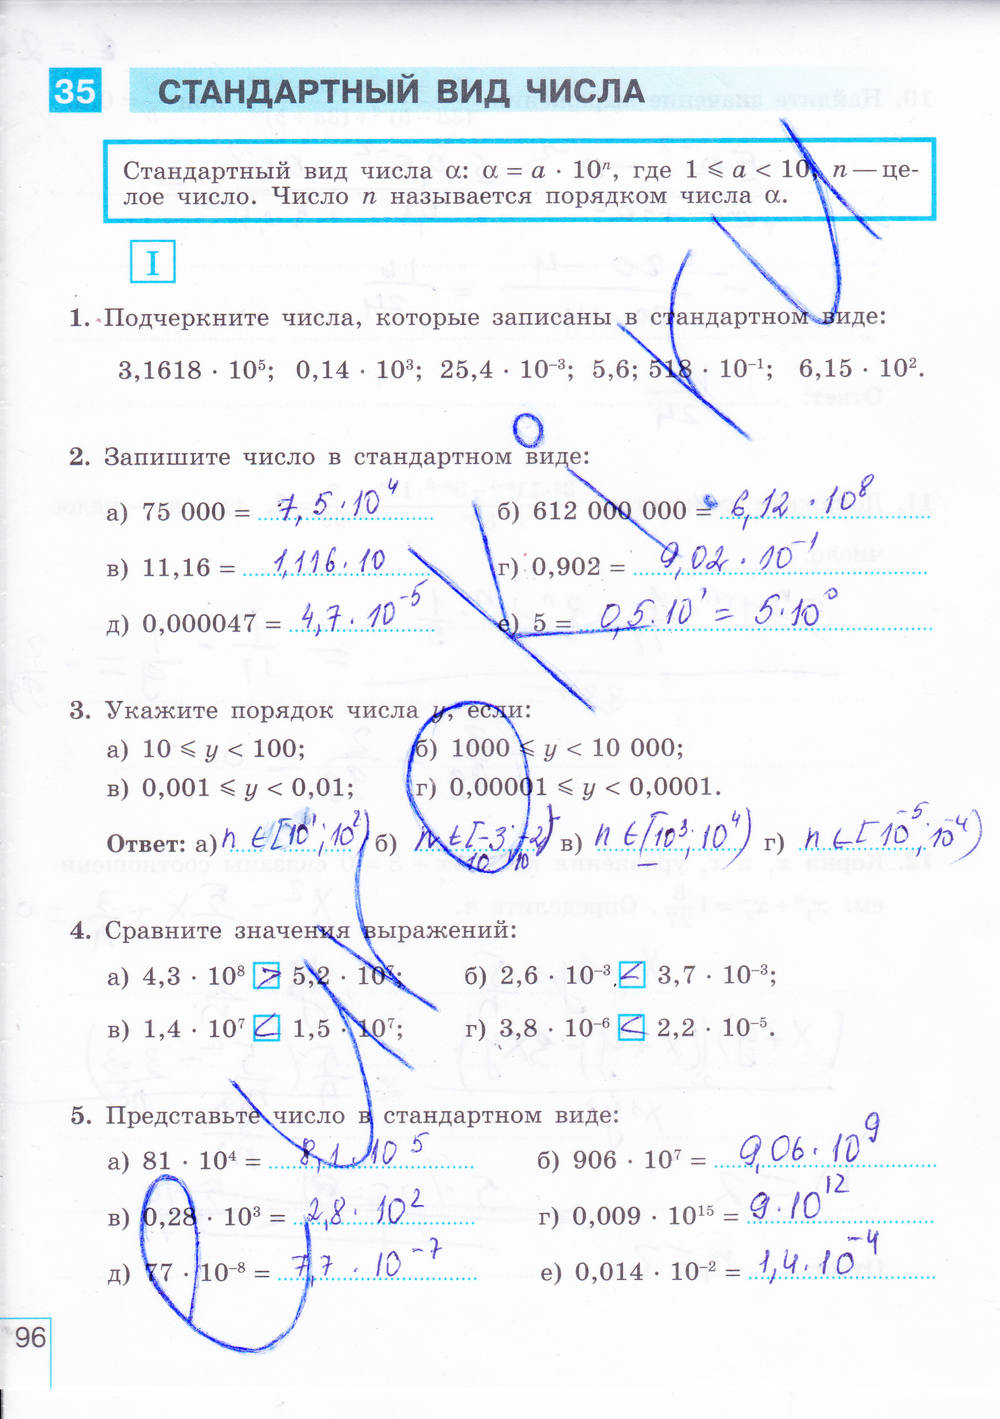 35 СТАНДАРТНЫЙ ВИД ЧИСЛА
Стандартный вид числа α: α = a · 10ⁿ, где 1 ⩽ a < 10, n — це-
лое число. Число n называется порядком числа α.
I
1. Подчеркните числа, которые записаны в стандартном виде:
3,1618 · 10⁵; 0,14 · 10³; 25,4 · 10⁻³; 5,6; 518 · 10⁻¹; 6,15 · 10².
2. Запишите число в стандартном виде:
а) 75 000 = 7,5 · 10⁴ б) 612 000 000 = 6,12 · 10⁸
в) 11,16 = 1,116 · 10 г) 0,902 = 9,02 · 10⁻¹
д) 0,000047 = 4,7 · 10⁻⁵ е) 5 = 0,5 · 10¹ = 5 · 10⁰
3. Укажите порядок числа y, если:
а) 10 ⩽ y < 100; б) 1000 ⩽ y < 10 000;
в) 0,001 ⩽ y < 0,01; г) 0,00001 ⩽ y < 0,0001.
Ответ: а) n ∈ [10¹; 10²) б) n ∈ [10⁻³; 10⁻²) в) n ∈ [10³; 10⁴) г) n ∈ [10⁻⁵; 10⁻⁴)
4. Сравните значения выражений:
а) 4,3 · 10⁸ > 5,2 · 10⁷; б) 2,6 · 10⁻³ < 3,7 · 10⁻³;
в) 1,4 · 10⁷ < 1,5 · 10⁷; г) 3,8 · 10⁻⁶ < 2,2 · 10⁻⁵.
5. Представьте число в стандартном виде:
а) 81 · 10⁴ = 8,1 · 10⁵ б) 906 · 10⁷ = 9,06 · 10⁹
в) 0,28 · 10³ = 2,8 · 10² г) 0,009 · 10¹⁵ = 9 · 10¹²
д) 77 · 10⁻⁸ = 7,7 · 10⁻⁷ е) 0,014 · 10⁻² = 1,4 · 10⁻⁴
96